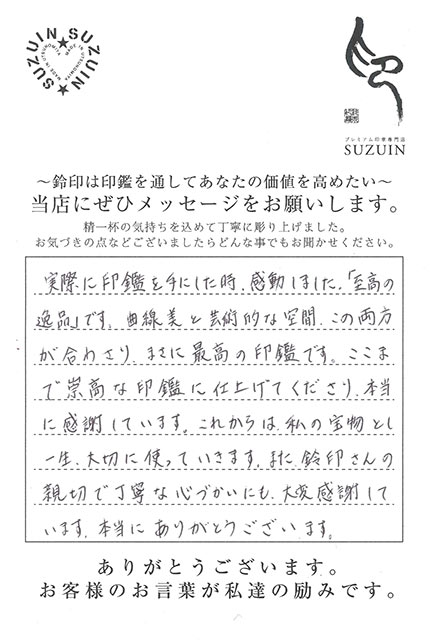 SUZUIN★SUZUIN★
印
プレミアム印章専門店
SUZUIN
～鈴印は印鑑を通してあなたの価値を高めたい～
当店にぜひメッセージをお願いします。
精一杯の気持ちを込めて丁寧に彫り上げました。
お気づきの点などございましたらどんな事でもお聞かせください。
実際に印鑑を手にした時、感動しました。「至高の
逸品」です。曲線美と芸術的な空間、この両方
が合わさり、まさに最高の印鑑です。ここま
で崇高な印鑑に仕上げてくださり、本当
に感謝しています。これからは、私の宝物とし
一生、大切に使っていきます。また、鈴印さんの
親切で丁寧な心づかいにも、大変感謝して
います。本当にありがとうございます。
ありがとうございます。
お客様のお言葉が私達の励みです。